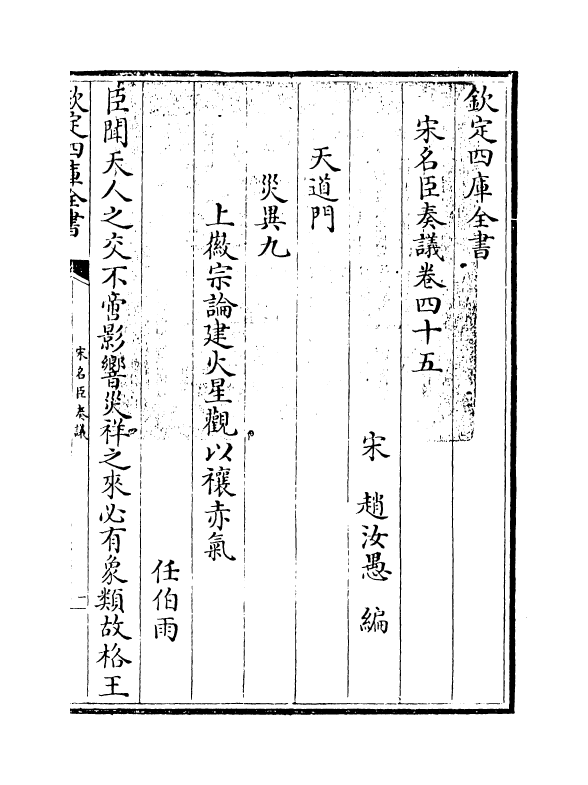 欽定四庫全書
宋名臣奏議卷四十五
宋　趙汝愚　編
天道門
災異九
上徽宗論建火星觀以禳赤氣
任伯雨
臣聞天人之交不啻影響災祥之來必有象類故格王
欽定四庫全書
宋名臣奏議